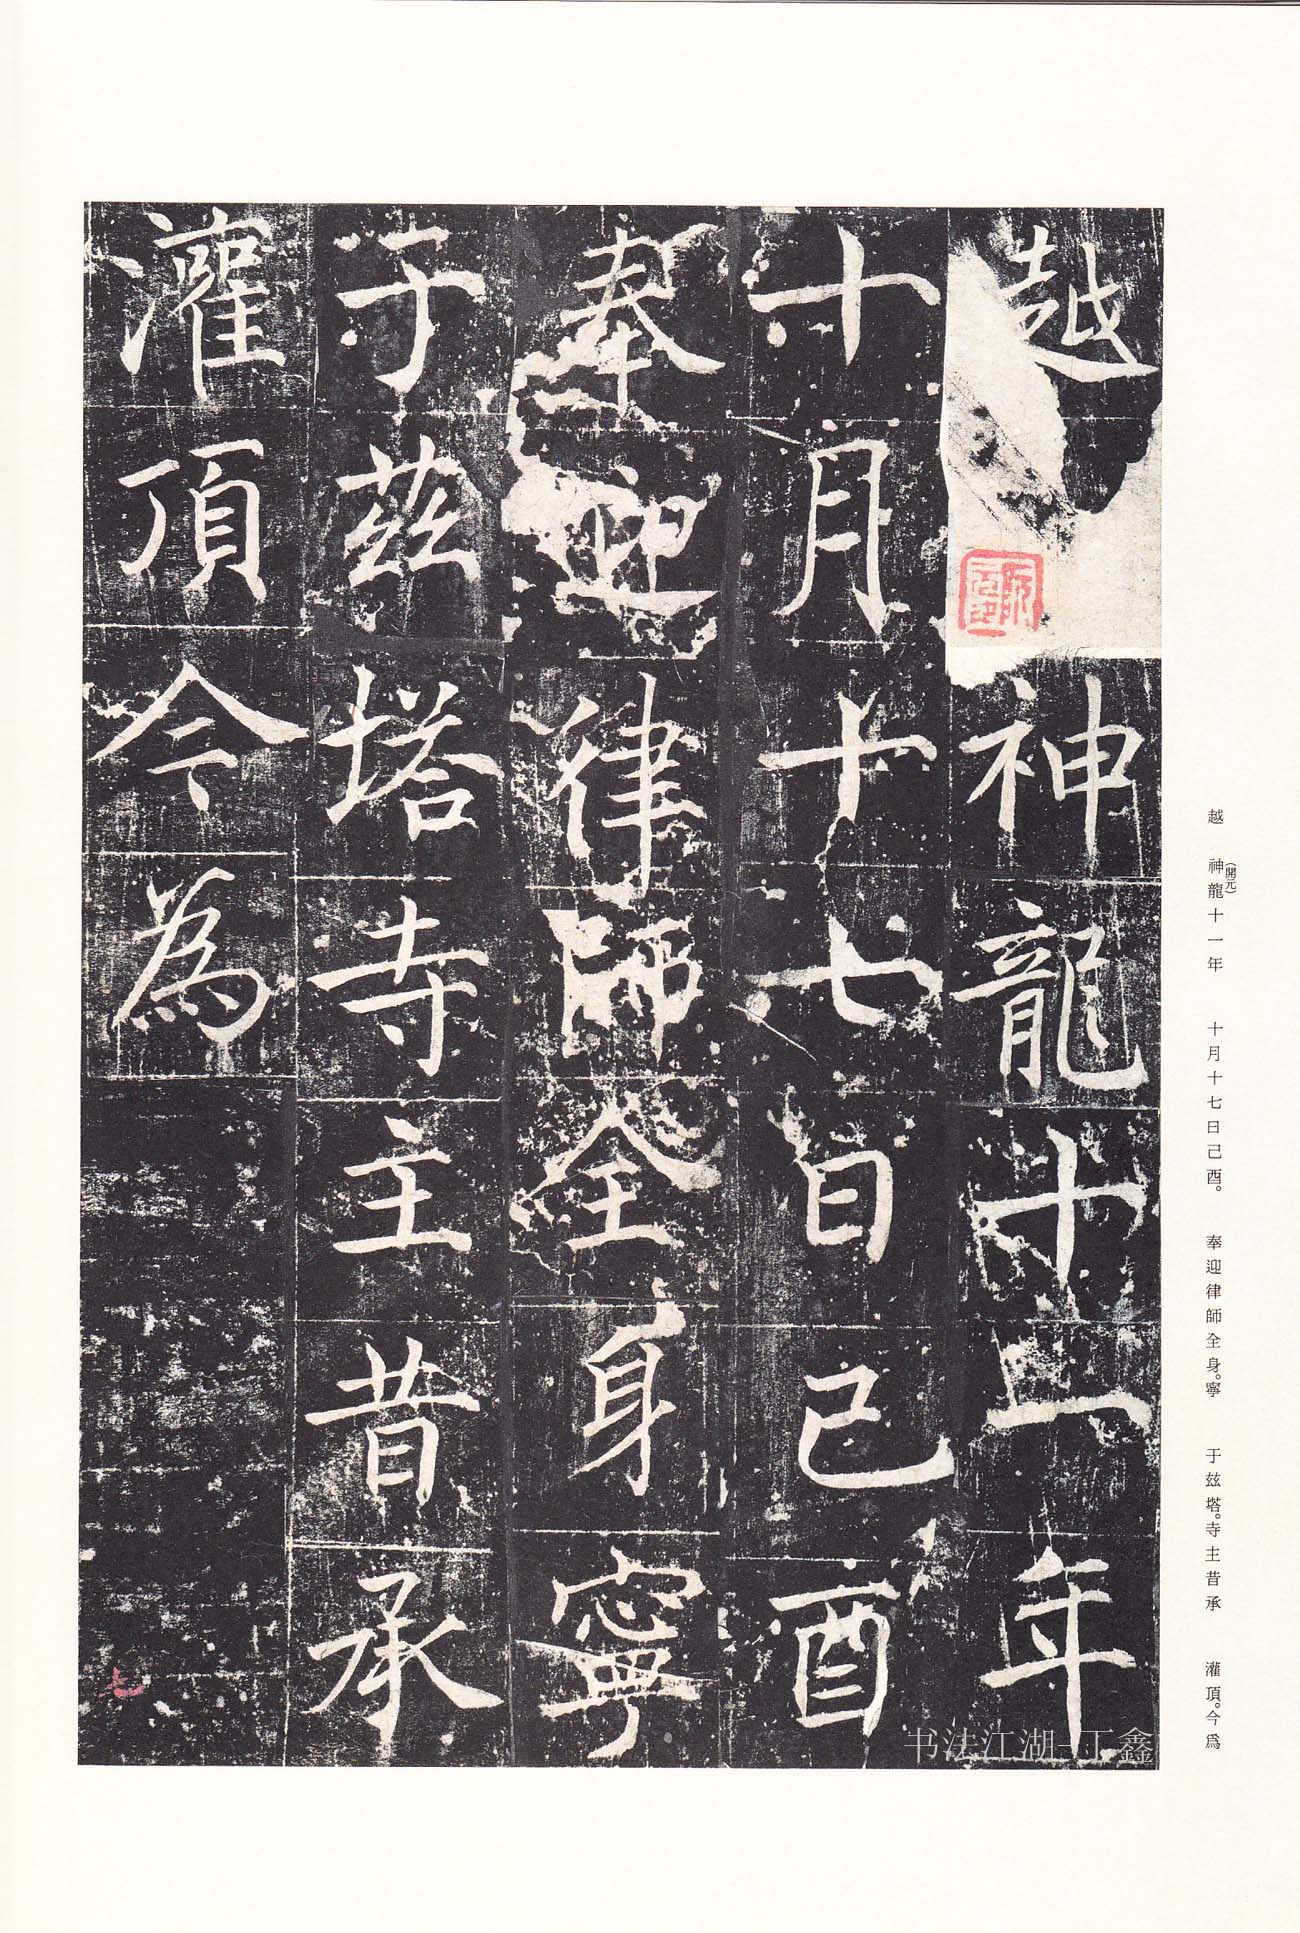 越 神龍十一年
十月十七日己酉
奉迎律師全身寧
于茲塔寺主昔承
灌頂今為
越 神龍十一年 十月十七日己酉。 奉迎律師全身。寧 于玆塔。寺主昔承 灌頂。今爲
(開元)
书法江湖-丁鑫